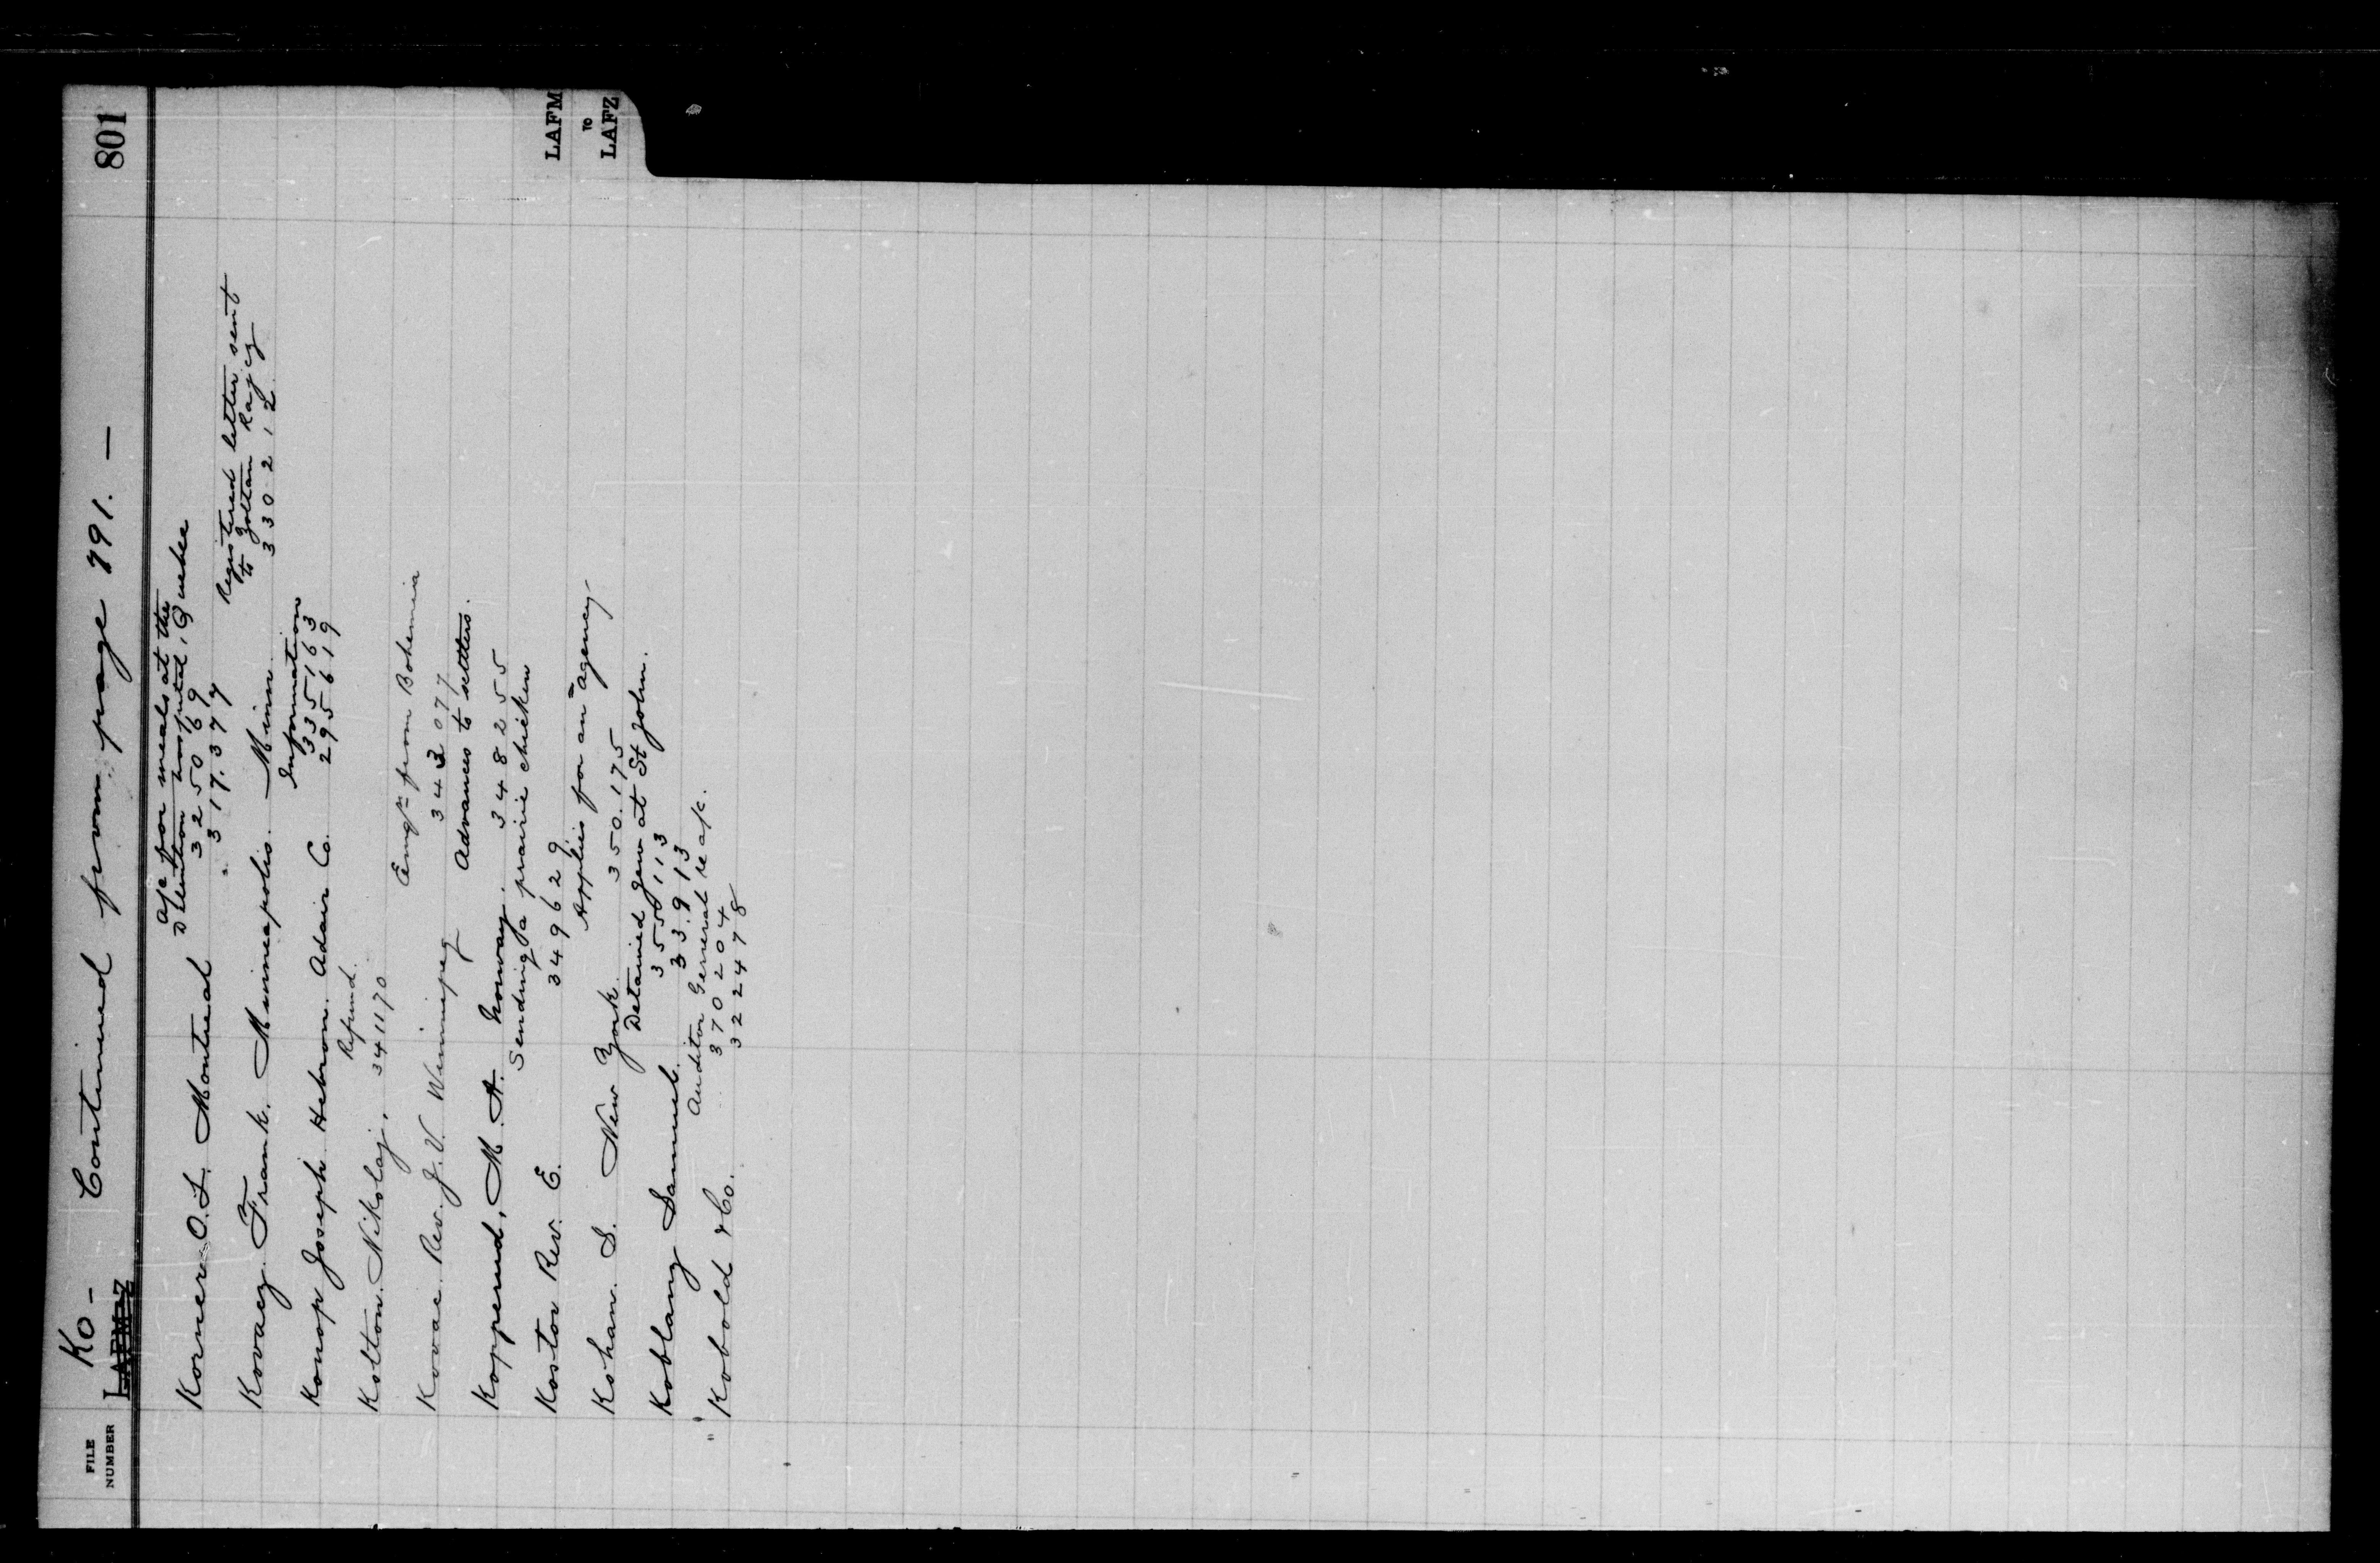 801
Ko - Continued from page 791. —
FILE
NUMBER
LAFM-Z
a/c for meals at the
Detention Hospital, Quebec
Korner O. L. Montreal 325069
" 317.377
Registered letter sent
to Zoltan Rajcz
Kovacz Frank. Minneapolis. Minn. 330212
Information
Konop Joseph Hebron. Adair Co. 335163
295619
Refund.
Kolton. Nikolaj. 341170
Emigtn from Bohemia
Kovac. Rev. J. V. Winnipeg 343077
Advances to settlers.
Kopperud, M. A. Norway. 348255
Sending a prairie chicken
Kostor Rev. E. 349629
Applies for an agency
Kohan. S. New York. 350.175
Detained gen at St John.
Koblanz Samuel. 355113
33.913
Auditor General re a/c.
" Kobold & Co. 370204
322478
LAFM
TO
LAFZ